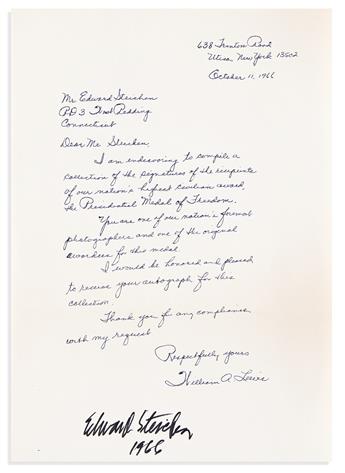 638 Trenton Road
Utica, New York 13502
October 11, 1966
Mr Edward Steichen
RD 3 West Redding
Connecticut
Dear Mr Steichen,
I am endeavoring to compile a
collection of the signatures of the recipients
of our nation's highest civilian award,
the Presidential Medal of Freedom.
You are one of our nation's foremost
photographers and one of the original
awardees for this medal.
I would be honored and pleased
to receive your autograph for this
collection.
Thank you for any compliance
with my request
Respectfully yours
William A. Lewis
Edward Steichen
1966